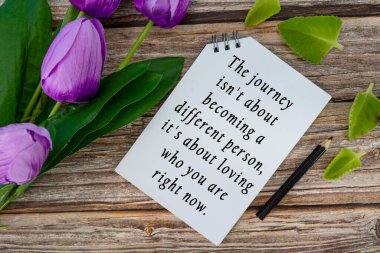 The journey
isn't about
becoming a
different person,
it's about loving
who you are
right now.